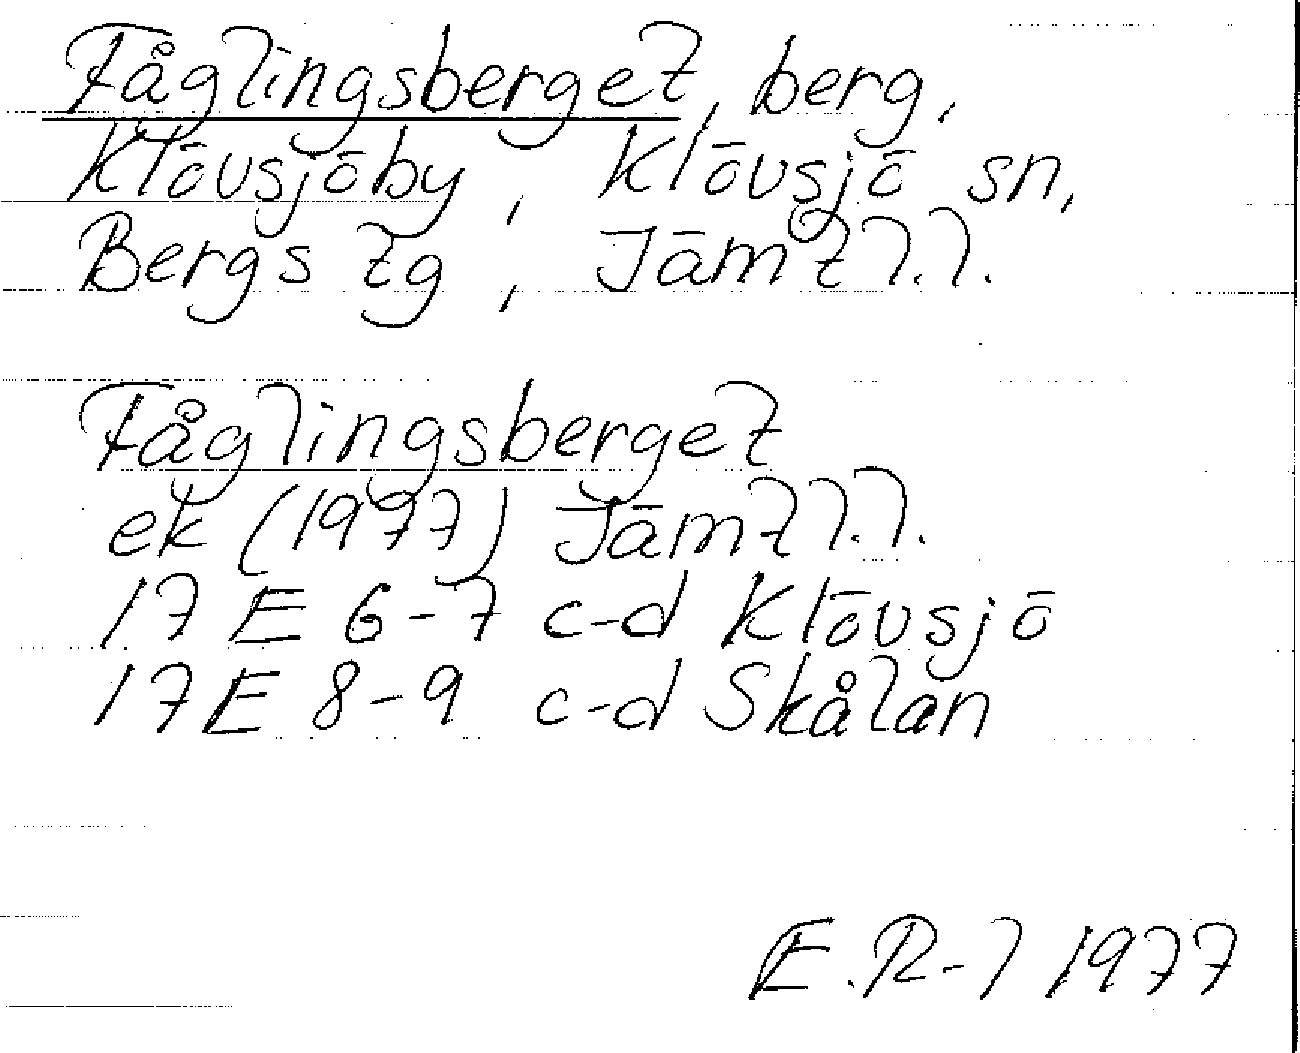 Fåglingsberget, berg,
Klövsjöby, Klövsjö sn,
Bergs tg, Jämtl.l.
Fåglingsberget
ek (1977) Jämtl.l.
17 E 6-7 c-d Klövsjö
17E 8-9 c-d Skålan
E.R-l 1977